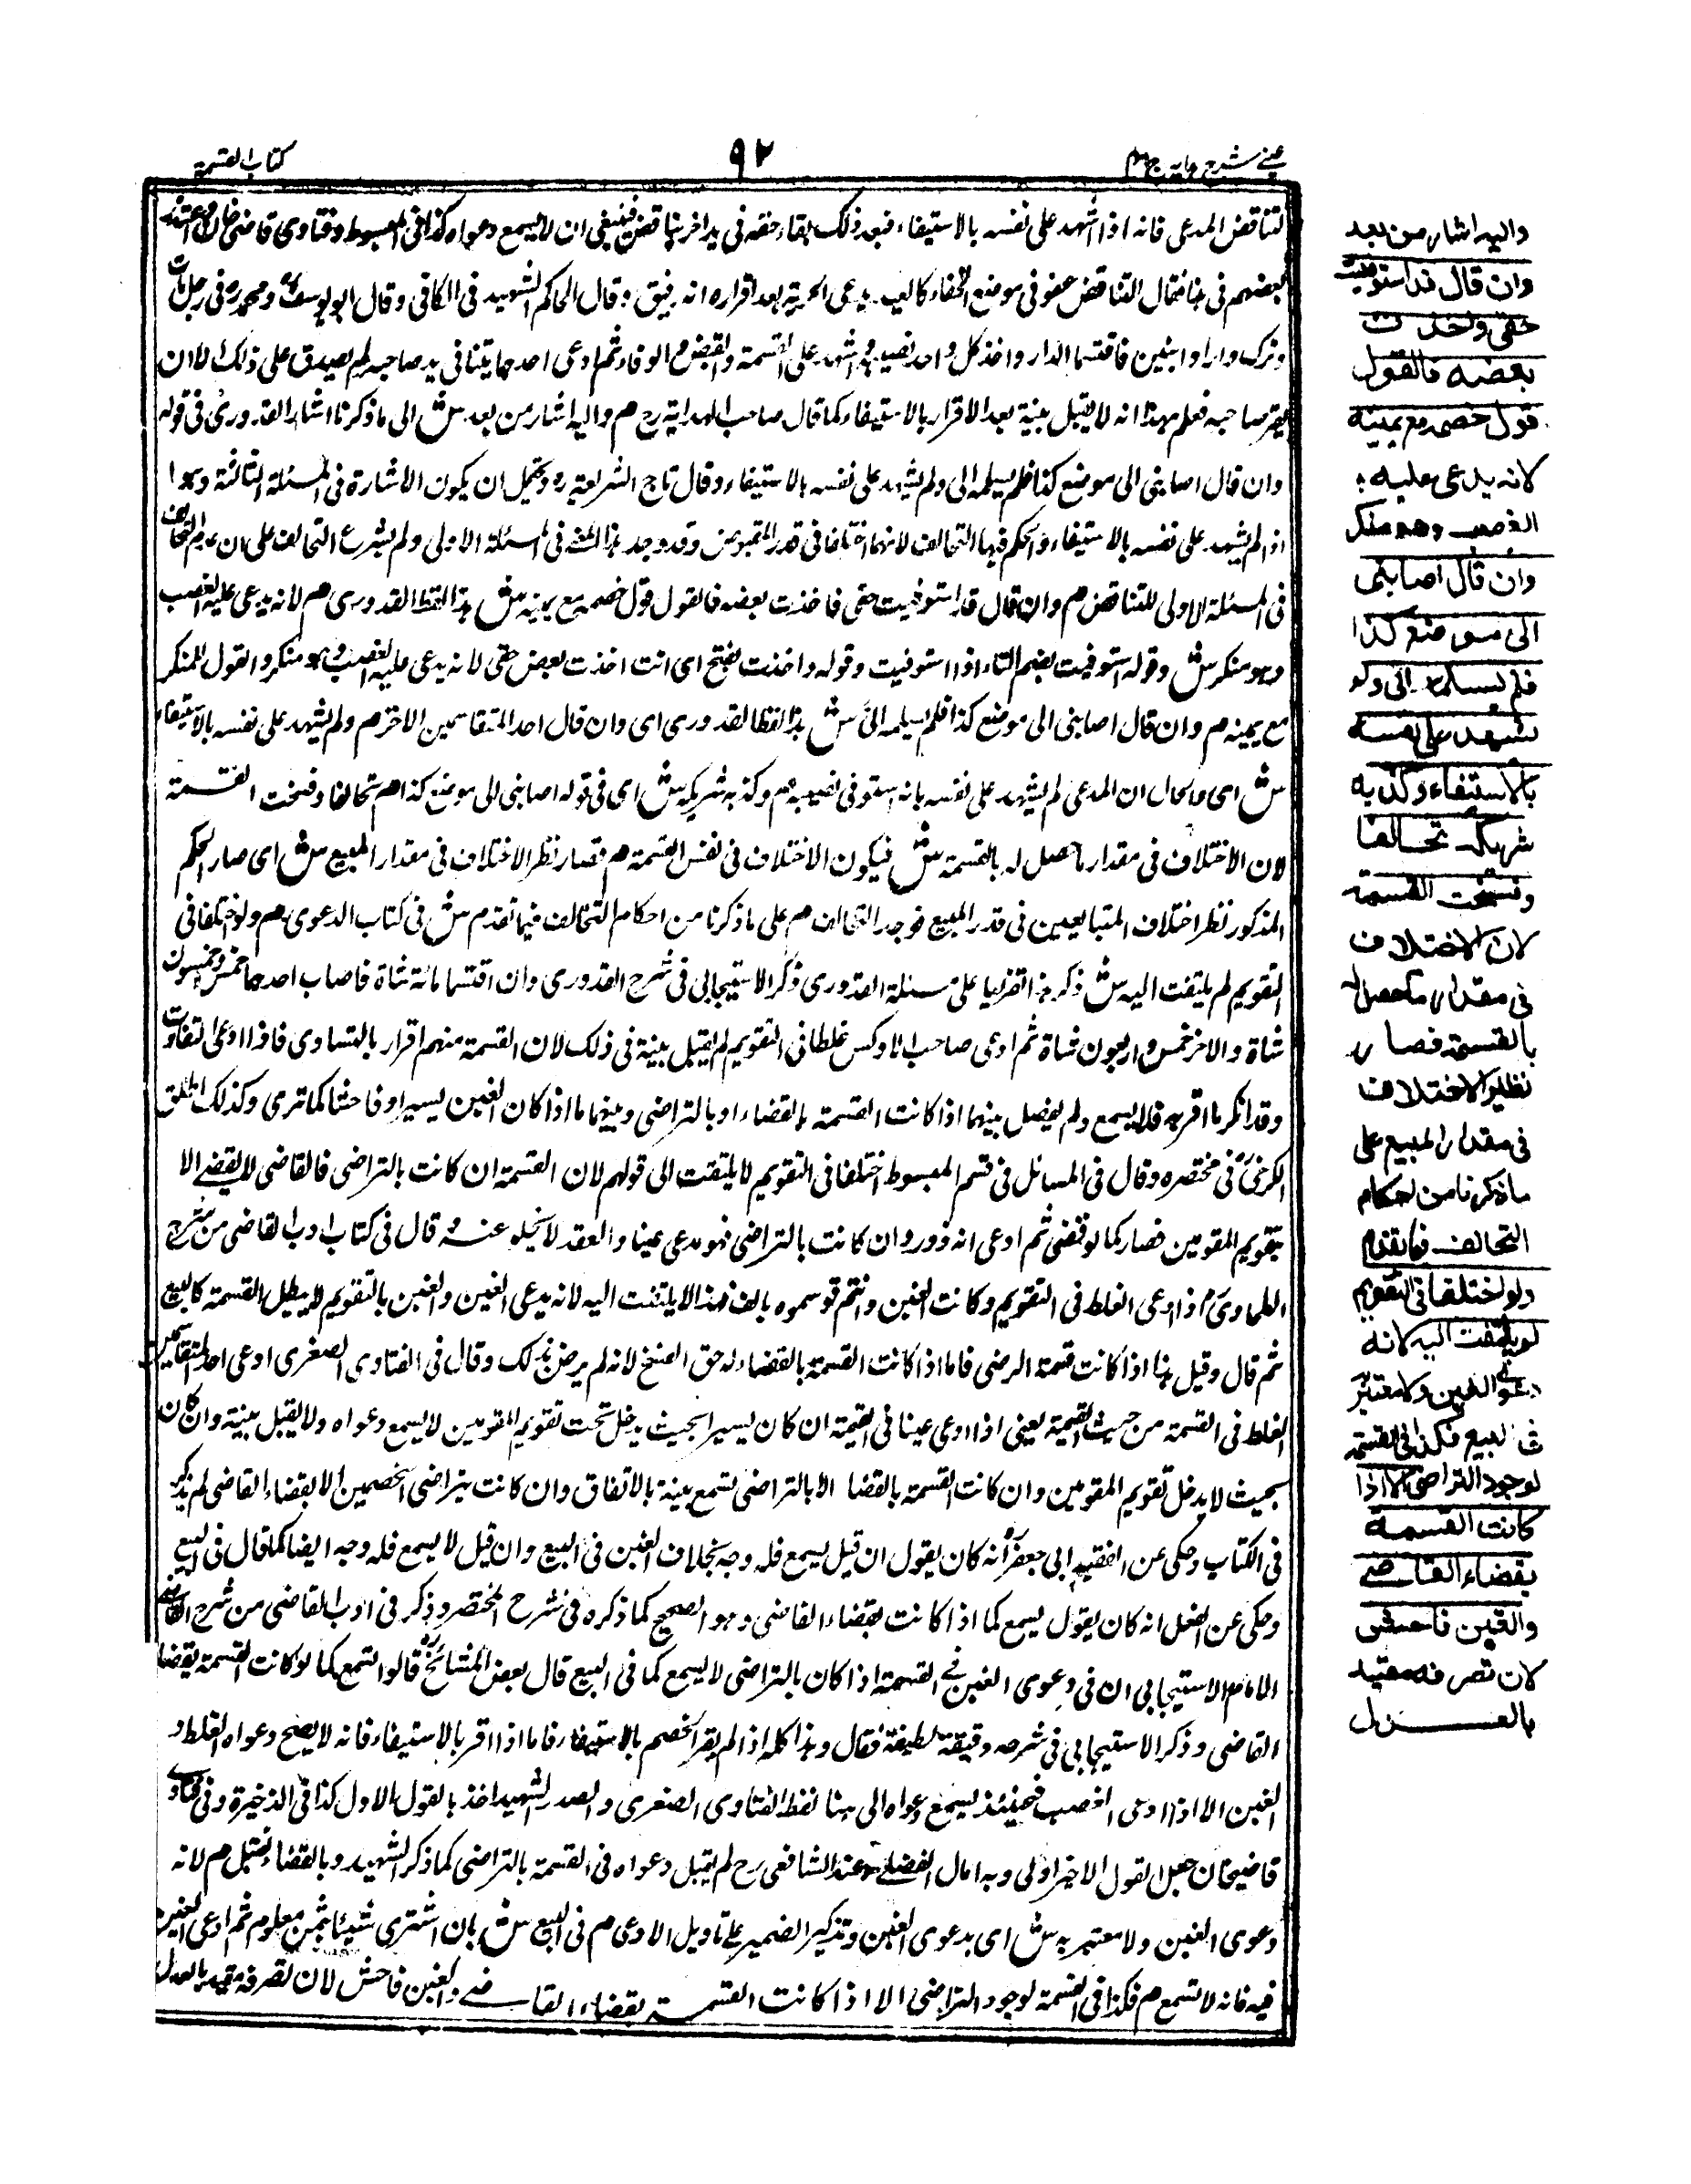 عینی شرح هدایه ج ۴
۹۲
کتاب القسمة
لتناقض المدعی فانه اذا اشهد علی نفسه بالاستیفاء فبعد ذلک بقاء حقه فی ید اخر یناقض فینبغی ان لا یسمع دعواه کذا فی المبسوط وفتاوی قاضی خان
بعضهم فی هذا فقال التناقض عفو فی موضع الخفاء کالعبد یدعی الحریة بعد اقراره انه رقیق وقال الحاکم الشهید فی الکافی وقال ابو یوسف ومحمد فی رجل مات
وترک دارا وابنین فاقتسما الدار واخذ کل واحد نصیبه واشهد علی القسمة والقبض والوفاء ثم ادعی احدهما بیتا فی ید صاحبه لم یصدق علی ذلک الا ان
یقر صاحبه فعلم بهذا انه لا یقبل بینة بعد الاقرار بالاستیفاء کما قال صاحب الهدایة رح م والیه اشار من بعد ش الی ما ذکرنا اشار القدوری فی قوله
وان قال اصابنی الی موضع کذا فلم یسلمه الی ولم یشهد علی نفسه بالاستیفاء وقال تاج الشریعة ره ویحتمل ان یکون الاشارة فی المسئلة الثالثة وهو ا
اذا لم یشهد علی نفسه بالاستیفاء والحکم فیها التحالف لانهما اختلفا فی قدر المقبوض وقد وجد هذا المعنی فی المسئلة الاولی ولم یشرع التحالف علی ان عدم التحالف
فی المسئلة الاولی للتناقض م وان قال قد استوفیت حقی فاخذت بعضه فالقول قول خصمه مع یمینه ش هذا لفظ القدوری م لانه یدعی علیه الغصب
وهو منکر ش وقوله استوفیت بضم التاء اذا استوفیت وقوله واخذت بفتح ای انت اخذت بعض حقی لانه یدعی علیه الغصب وهو منکر والقول للمنکر
مع یمینه م وان قال اصابنی الی موضع کذا فلم یسلمه الیّ ش هذا لفظ القدوری ای وان قال احد المتقاسمین الاخر م ولم یشهد علی نفسه بالاستیفاء
ش ای والحال ان المدعی لم یشهد علی نفسه بانه استوفی نصیبه م وکذبه شریکه ش ای فی قوله اصابنی الی موضع کذا م تحالفا وفسخت القسمة
لان الاختلاف فی مقدار ما حصل له بالقسمة ش فیکون الاختلاف فی نفس القسمة م فصار نظیر الاختلاف فی مقدار المبیع ش ای صار الحکم
المذکور نظیر اختلاف المتبایعین فی قدر المبیع فوجد التحالف م علی ما ذکرنا من احکام التحالف فیما تقدم ش فی کتاب الدعوی م ولو اختلفا فی
التقویم لم یلتفت الیه ش ذکر هذا تفریعا علی مسئلة القدوری ذکر الاسبیجابی فی شرح القدوری وان اقتسما مائة شاة فاصاب احدهما خمس وخمسون
شاة والاخر خمس واربعون شاة ثم ادعی صاحب الاوکس غلطا فی التقویم لم یقبل بینة فی ذلک لان القسمة منهم اقرار بالتساوی فاذا ادعی التفاوت
وقد انکر ما اقر به فلا یسمع ولم یفصل بینهما اذا کانت القسمة بالقضاء او بالتراضی وبینما ما اذا کان الغبن یسیرا او فاحشا کما تری وکذلک اطلق
الکرخی فی مختصره وقال فی المسائل فی قسم المبسوط اختلفا فی التقویم لا یلتفت الی قولهم لان القسمة ان کانت بالتراضی فالقاضی لا یقضی الا
بتقویم المقومین فصار کما لو قضی ثم ادعی انه زور وان کانت بالتراضی فهو مدعی عینا والعقد لا یخلو عنه قال فی کتاب ادب القاضی من شرح
الطحاوی اذا ادعی الغلط فی التقویم وکانت الغبن وانتم قوسموه بالف فهذا لا یلتفت الیه لانه یدعی الغبن والغبن بالتقویم لا یبطل القسمة کالبیع
ثم قال وقیل هذا اذا کانت قسمة الرضی فاما اذا کانت القسمة بالقضاء له حق الفسخ لانه لم یرض بذلک وقال فی الفتاوی الصغری ادعی احد المتقاسمین
الغلط فی القسمة من حیث القیمة یعنی اذا ادعی عینا فی القیمة ان کان یسیرا بحیث یدخل تحت تقویم المقومین لا یسمع دعواه ولا یقبل بینة وان کان
بحیث لا یدخل تقویم المقومین وان کانت القسمة بالقضا لا بالتراضی تسمع بینة بالاتفاق وان کانت بتراضی الخصمین لا بقضاء القاضی لم یذکر
فی الکتاب وحکی عن الفقیه ابی جعفر انه کان یقول ان قیل یسمع فله وجه بخلاف الغبن فی البیع وان قیل لا یسمع فله وجه ایضا کما قال فی البیع
وحکی عن الفضل انه کان یقول یسمع کما اذا کانت بقضاء القاضی وهو الصحیح کما ذکره فی شرح المختصر وذکر فی ادب القاضی من شرح
الامام الاسبیجابی ان فی دعوی الغبن فی القسمة اذا کان بالتراضی لا یسمع کما فی البیع قال بعض المشائخ قالوا تسمع کما لو کانت القسمة بقضا
القاضی وذکر الاسبیجابی فی شرحه دقیقة لطیفة فقال وهذا کله اذا لم یقر الخصم بالاستیفاء فاما اذا اقر بالاستیفاء فانه لا یصح دعواه الغلط و
الغبن الا اذا ادعی الغصب فحینئذ یسمع دعواه الی هنا لفظ الفتاوی الصغری والصدر الشهید اخذ بالقول الاول کذا فی الذخیرة وفی فتاوی
قاضیخان جعل القول الاخیر اولی وبه امال الفضلی وعند الشافعی رح لم یقبل دعواه فی القسمة بالتراضی کما ذکر الشهید وبالقضاء یقبل م لانه
دعوی الغبن ولا معتبر به ش ای بدعوی الغبن وتذکیر الضمیر علی تاویل الادعی م فی البیع ش بان اشتری شیئا بثمن معلوم ثم ادعی الغبن
فیه فانه لا تسمع م فکذا فی القسمة لوجود التراضی الا اذا کانت القسمة بقضاء القاضی والغبن فاحش لان تصرفه مقید بالعدل
والیه اشار من بعد
وان قال قد استوفیت
حقی واخذت
بعضه فالقول
قول خصمه مع یمینه
لانه یدعی علیه
الغصب وهو منکر
وان قال اصابنی
الی موضع کذا
فلم یسلمه الی ولم
یشهد علی نفسه
بالاستیفاء وکذبه
شریکه تحالفا
وفسخت القسمة
لان الاختلاف
فی مقدار ما حصل له
بالقسمة فصار
نظیر الاختلاف
فی مقدار المبیع علی
ما ذکرنا من احکام
التحالف فیما تقدم
ولو اختلفا فی التقویم
لم یلتفت الیه لانه
دعوی الغبن ولا معتبر
فی البیع فکذا فی القسمة
لوجود التراضی الا اذا
کانت القسمة
بقضاء القاضی
والغبن فاحش
لان تصرفه مقید
بالعدل